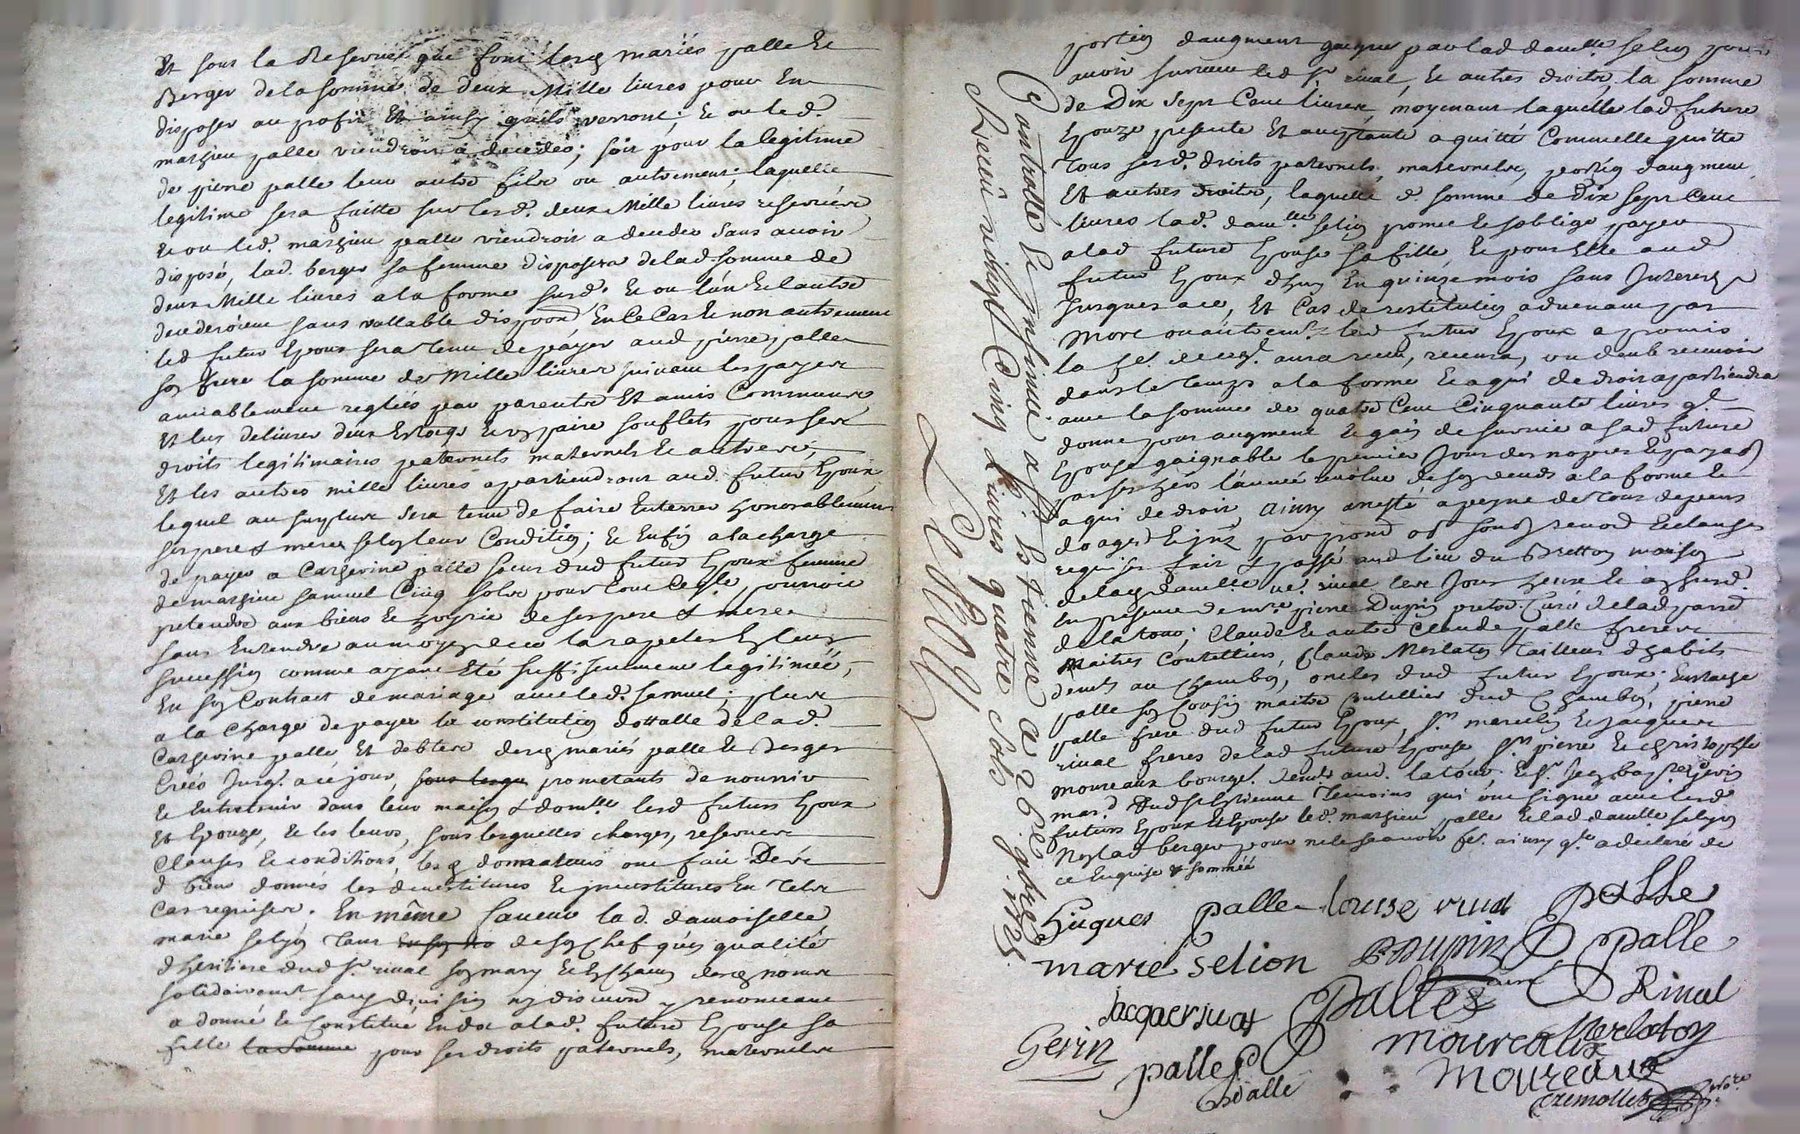 Et sous la Reserve que font lesd mariés palle et
Berger de la somme de deux Mille livres pour en
disposer au profit Et ainsy quils verront; Et ou led.
mathieu palle viendroit a deceder; soit pour la legitime
de pierre palle leur autre fils ou autrement; laquelle
legitime sera faitte sur lesd. deux Mille livres reservées
Et ou led. mathieu palle viendroit a deceder sans avoir
disposé, lad. berger sa femme disposera de lad somme de
deux Mille livres a la forme susd. Et ou l'un et lautre
decederoient sans vallable dispoon, En ce Cas et non autrement
led futur Epoux sera tenu de payer aud pierre palle
son frere la somme de Mille livres suivant les payes
amiablement reglées par parents Et amis Communs
Et luy delivrer deux Estocqs et une paire soufflets pour ses
droits legitimaires paternels maternels et autres;
Et les autres mille livres apartiendront aud. futur Epoux
lequel au surplus sera tenu de faire Enterrer honorablement
ses pere & mere selon leur Condition; Et Enfin a la charge
de payer a Catherine palle sœur dud futur Epoux femme
de mathieu Samuel Cinq sols pour tout ce quelle pourroit
pretendre aux biens et hoyrie de ses pere & mere
sans Entendre au moyen de ce la rapeller En leur
succession comme ayant Eté suffisamment legitimée,
En son Contract de mariage avec led. Samuel; plus
a la charge de payer la constitution dottalle de lad.
Catherine palle, Et debtes desd mariés palle et Berger
Créés jusqu. a ce jour, sous lesqu prometants de nourrir
et Entretenir dans leur maison & domlle lesd futurs Epoux
Et Epouze, et les leurs, sous lesquelles charges, reserves
Clauses et conditions, lesd donnateurs ont fait Deve
d biens donnés les devestitures et investitures En tels
Cas requises. En même faveur lad. damoiselle
marie selion tant en son no de son Chef qu'en qualité
dheritiere dud Sr. rival son mary et En Chacun desd noms
solidairemt. sans division ny discution y renonceant
a donné et Constitué En dot a lad. future Epouse sa
fille la somme pour ses droits paternels, maternels
portion daugment gaignée par lad damelle selion pour
avoir survecu led Sr rival, et autres droits, la somme
de Dix Sept Cent livres, moyenant laquelle lad future
Epouze presente Et acceptante a quitté Comme elle quitte
tous sesd. droits paternels, maternels, portion daugment,
Et autres droits, laquelle d. somme de Dix sept Cent
livres lad. damlle. selion promet et soblige payer
a lad future Epouse sa fille, et pour Elle aud
futur Epoux d'huy En quinze mois sans Interest
Jusques a ce, Et Cas de restitution advenant par
mort ou autremt. led futur Epoux a promis
dans le temps a la forme et a qui de droit apartiendra
avec la somme de quatre Cent Cinquante livres ql.
donne pour augment et gain de survie a sad future
Epouse gaignable le premier Jour des nopces et payab
par ses hers l'année revolue de son deceds a la forme et
a qui de droit ainsy aresté a peyne de tous depens
requises fait & passé aud lieu du Bretton maison
de lad damlle. ve. rival le Jour heure et an susd.
En presence de mre. pierre Dupin pretre Curé de lad parr
de la tour; Claude et autre Claude palle freres
Maitres Coutelliers, Claude Merlaton Tailleur dhabits
demts au Chambon, oncles dud futur Epoux; Eustache
palle son Cousin maitre Coutellier dud Chambon, pierre
palle frere dud futur Epoux, Srs marcelin et Jacques
rival freres de lad future Epouse Srs pierre et christophle
moureaux bourgs. demts aud. latour. et Sr. Jean baptte gerin
mard. dud St Etienne Temoins qui ont signé avec lesd
futurs Epoux et Epouse led. mathieu palle et lad damlle selion
Non lad berger pour ne le scavoir fe. ainsy ql. a declaré de
ce Enquise & sommée
Hugues palle louise rival palle
marie selion Dupin curé palle
Jacques rival palle Rival
Gerin moureaux Merlaton
palle moureaux
palle
Cremollet Nore
Controllé et insinué a St Etienne ce 26e 9bre 1725.
Receu vingt Cinq Livres quatre Sols